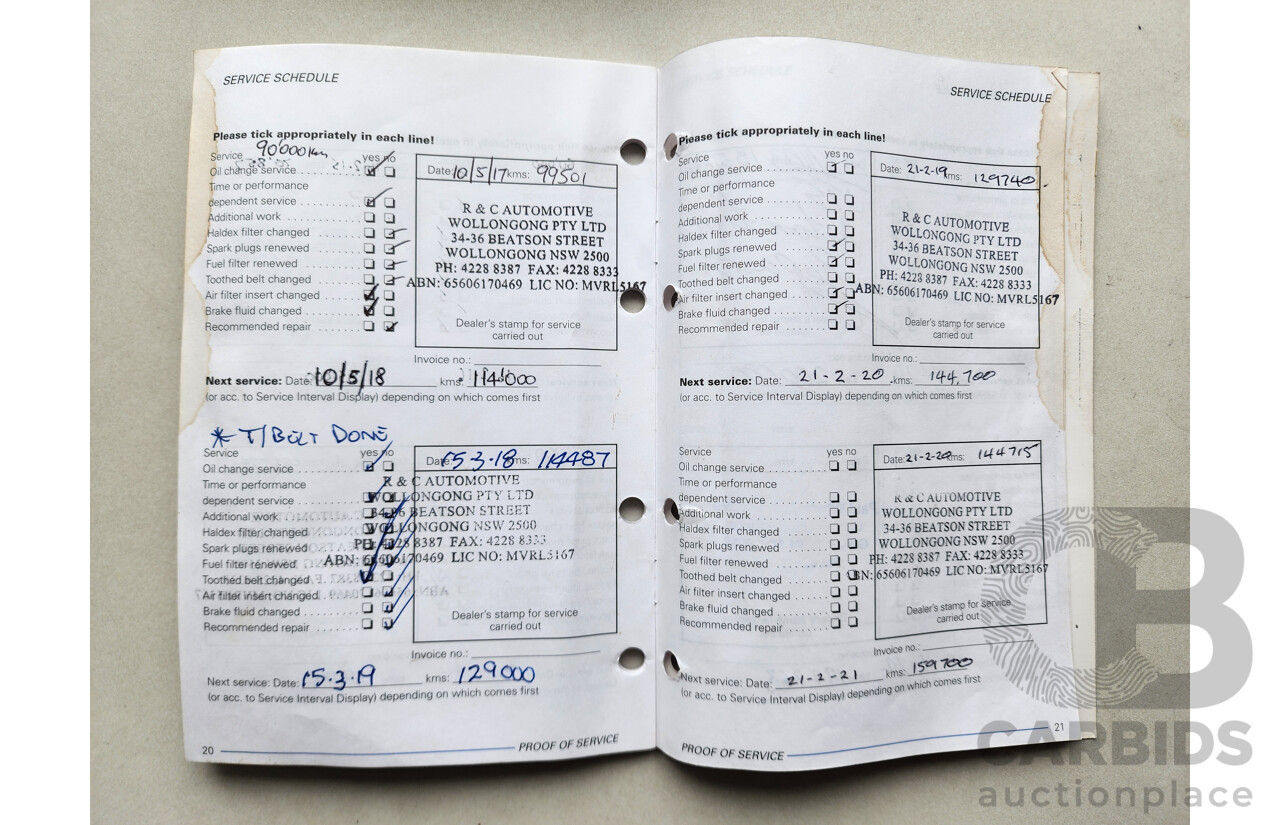 SERVICE SCHEDULE
Please tick appropriately in each line!
90'000 Km
Service yes no
Oil change service
Time or performance
dependent service
Additional work
Haldex filter changed
Spark plugs renewed
Fuel filter renewed
Toothed belt changed
Air filter insert changed
Brake fluid changed
Recommended repair
Date: 10/5/17 kms: 99501
R & C AUTOMOTIVE
WOLLONGONG PTY LTD
34-36 BEATSON STREET
WOLLONGONG NSW 2500
PH: 4228 8387 FAX: 4228 8333
ABN: 65606170469 LIC NO: MVRL5167
Dealer's stamp for service
carried out
Invoice no.:
Next service: Date: 10/5/18 kms: 114000
(or acc. to Service Interval Display) depending on which comes first
* T/BELT DONE
Service yes no
Oil change service
Time or performance
dependent service
Additional work
Haldex filter changed
Spark plugs renewed
Fuel filter renewed
Toothed belt changed
Air filter insert changed
Brake fluid changed
Recommended repair
Date: 15.3.18 kms: 114487
R & C AUTOMOTIVE
WOLLONGONG PTY LTD
34-36 BEATSON STREET
WOLLONGONG NSW 2500
PH: 4228 8387 FAX: 4228 8333
ABN: 65606170469 LIC NO: MVRL5167
Dealer's stamp for service
carried out
Invoice no.:
Next service: Date: 15.3.19 kms: 129000
(or acc. to Service Interval Display) depending on which comes first
20 PROOF OF SERVICE
SERVICE SCHEDULE
Please tick appropriately in each line!
Service yes no
Oil change service
Time or performance
dependent service
Additional work
Haldex filter changed
Spark plugs renewed
Fuel filter renewed
Toothed belt changed
Air filter insert changed
Brake fluid changed
Recommended repair
Date: 21-2-19 kms: 129740.
R & C AUTOMOTIVE
WOLLONGONG PTY LTD
34-36 BEATSON STREET
WOLLONGONG NSW 2500
PH: 4228 8387 FAX: 4228 8333
ABN: 65606170469 LIC NO: MVRL5167
Dealer's stamp for service
carried out
Invoice no.:
Next service: Date: 21-2-20 kms: 144,700
(or acc. to Service Interval Display) depending on which comes first
Service yes no
Oil change service
Time or performance
dependent service
Additional work
Haldex filter changed
Spark plugs renewed
Fuel filter renewed
Toothed belt changed
Air filter insert changed
Brake fluid changed
Recommended repair
Date: 21-2-20 kms: 144715
R & C AUTOMOTIVE
WOLLONGONG PTY LTD
34-36 BEATSON STREET
WOLLONGONG NSW 2500
PH: 4228 8387 FAX: 4228 8333
BN: 65606170469 LIC NO: MVRL5167
Dealer's stamp for service
carried out
Invoice no.:
Next service: Date: 21-2-21 kms: 159700
(or acc. to Service Interval Display) depending on which comes first
PROOF OF SERVICE 21
CARBIDS
auctionplace